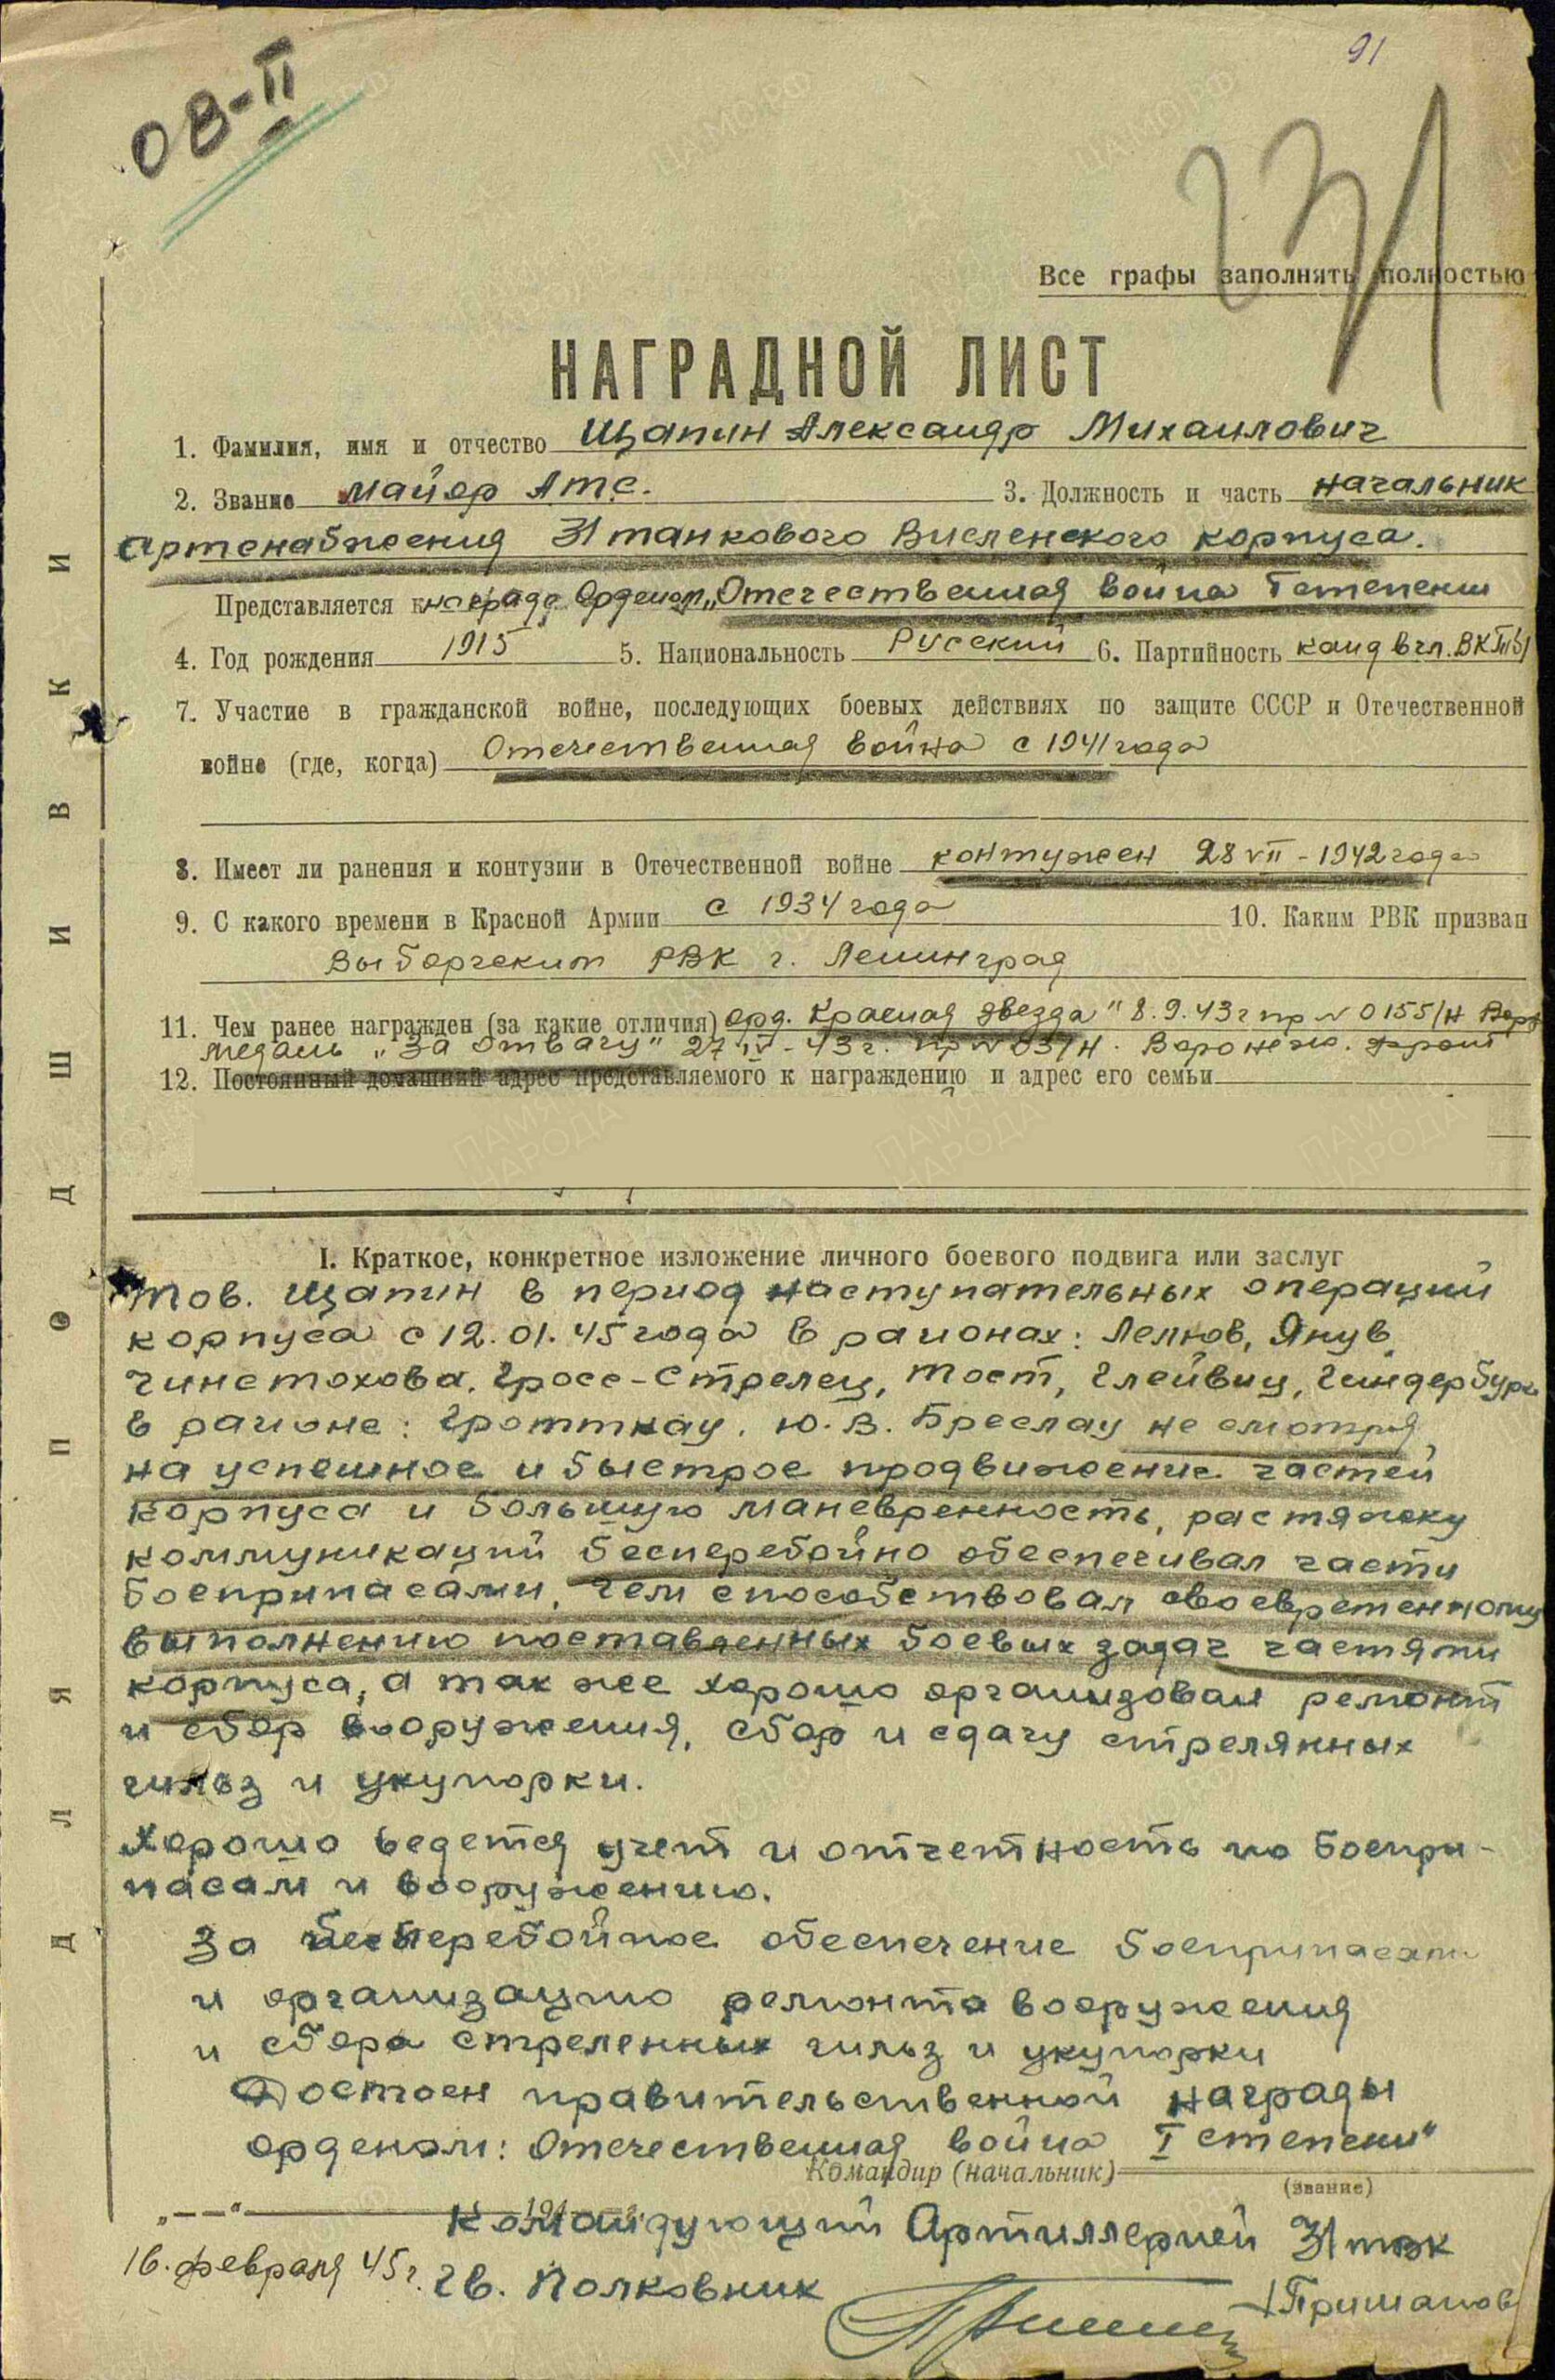 91
08-II
231
Все графы заполнять полностью
НАГРАДНОЙ ЛИСТ
1. Фамилия, имя и отчество Щапин Александр Михаилович
2. Звание майор Атс. 3. Должность и часть начальник
артснабжения 31 танкового Висленского корпуса.
Представляется к награде Орденом „Отечественная война I степени
4. Год рождения 1915 5. Национальность Русский 6. Партийность канд в чл. ВКП/б/
7. Участие в гражданской войне, последующих боевых действиях по защите СССР и Отечественной
войне (где, когда) Отечественная война с 1941 года
8. Имеет ли ранения и контузии в Отечественной войне контужен 28 VII - 1942 года
9. С какого времени в Красной Армии с 1934 года 10. Каким РВК призван
Выборгским РВК г. Ленинград
11. Чем ранее награжден (за какие отличия) орд. Красная звезда" 8.9.43 г пр N 0155/н Вор.
медаль „За отвагу" 27 IV - 43 г. пр N 03/н. Воронеж. фронт
12. Постоянный домашний адрес представляемого к награждению и адрес его семьи
I. Краткое, конкретное изложение личного боевого подвига или заслуг
Тов. Щапин в период наступательных операций
корпуса с 12.01.45 года в районах: Лелюв, Янув,
Чинстохова, Гросс-Стрелец, Тост, Глейвиц, Гинденбург
в районе: Гротткау, ю.в. Бреслау не смотря
на успешное и быстрое продвижение частей
корпуса и большую маневренность, растяжку
коммуникаций бесперебойно обеспечивал части
боеприпасами, чем способствовал своевременному
выполнению поставленных боевых задач частями
корпуса, а так же хорошо организовал ремонт
и сбор вооружения, сбор и сдачу стрелянных
гильз и укупорки.
Хорошо ведется учет и отчетность по боепри-
пасам и вооружению.
За бесперебойное обеспечение боеприпасами
и организацию ремонта вооружения
и сбора стреленных гильз и укупорки
Достоен правительственной награды
орденом: Отечественная война I степени"
Командир (начальник)
(звание)
„ — " 194
Командующий Артиллерией 31 твк
16. февраля 45 г. Гв. Полковник
/Приманов
ДЛЯ ПОДШИВКИ